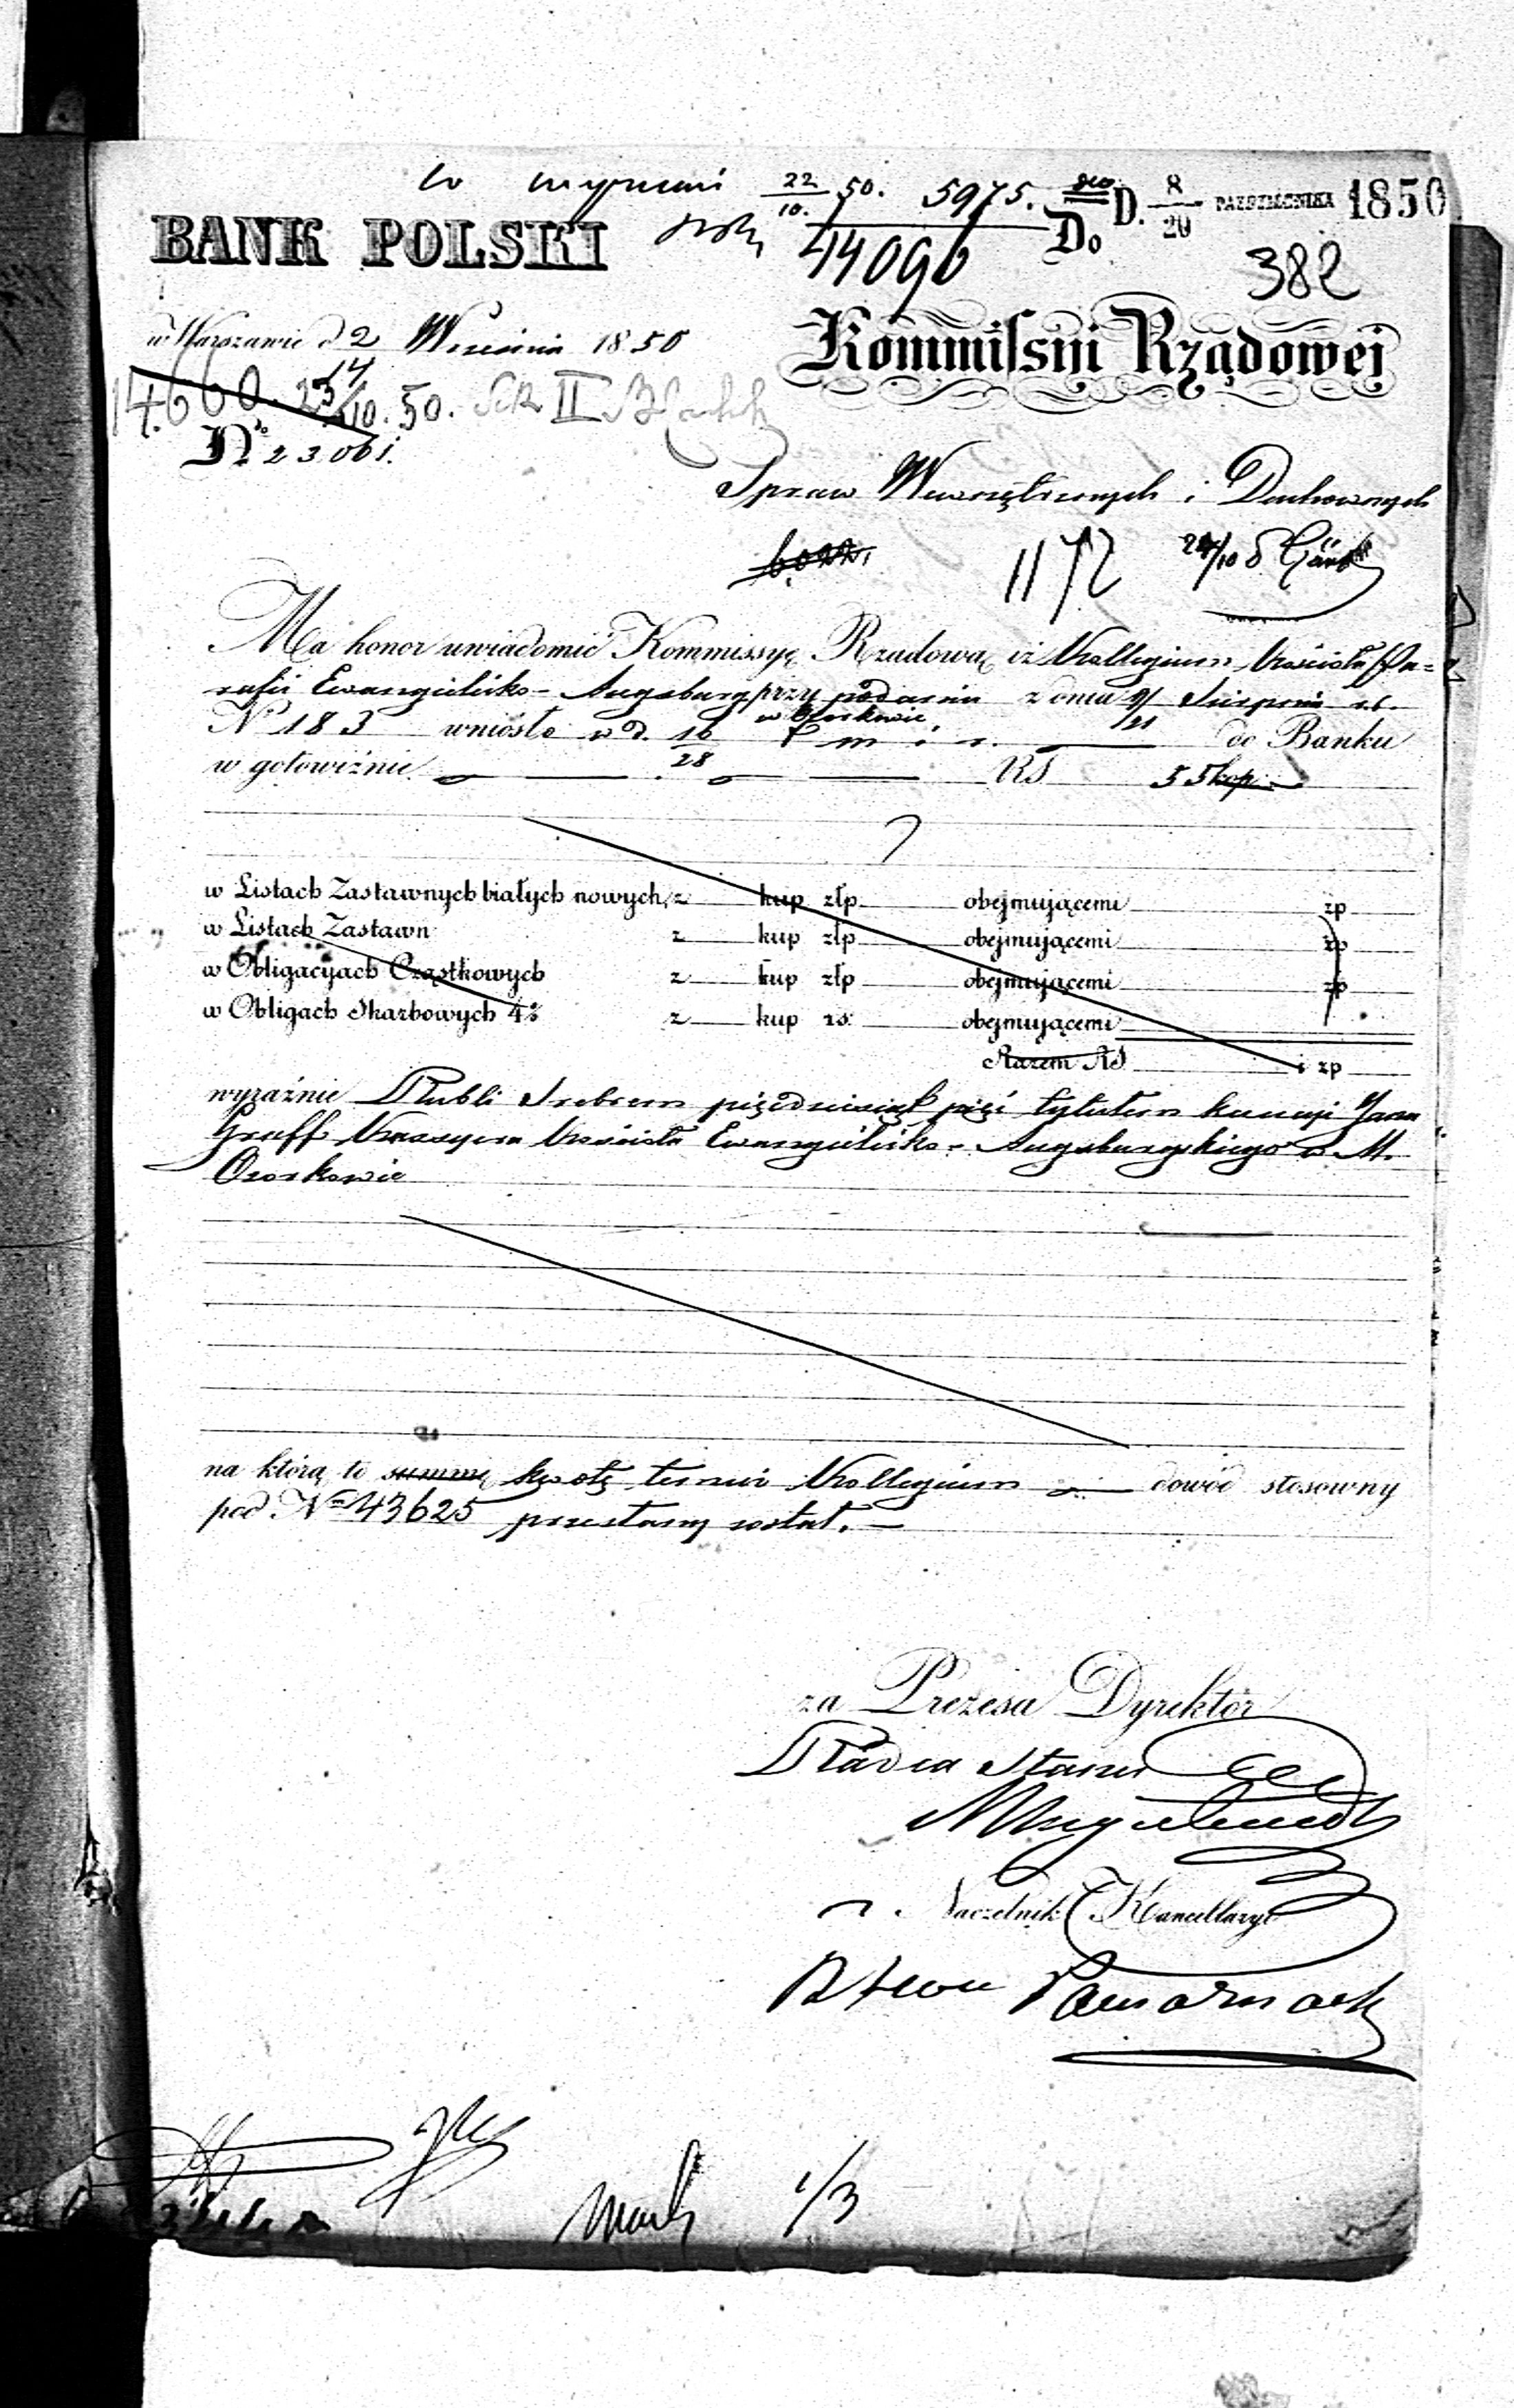 22/10. 50. 5975. D. 8/20 PAZDZIERNIKA 1850
BANK POLSKI 44096 Do 382
w Warszawie d 2/14 Wrzesnia 1850
Kommissyi Rządowej
14660. 23/10. 50. II
No 23061.
Spraw Wewnętrznych i Duchownych
1172 24/10
Ma honor uwiadomić Kommissyę Rządową iż Kollegium Kościoła Pa=
rafii Ewangielicko-Augsburg przy podaniu z dnia 9/21 Sierpnia r.b.
w Ozorkowie
No 183 wniosło w d. 16/28 t. m. i r. do Banku
w gotowiźnie RS 55 kop. —
w Listach Zastawnych białych nowych z kup złp obejmującemi zp
w Listach Zastawn z kup złp obejmującemi zp
w Obligacyach Cząstkowych z kup złp obejmującemi zp
w Obligach Skarbowych 4% z kup rs obejmującemi
Razem RS i zp
wyraźnie Rubli Srebrem pięćdziesiąt pięć tytułem kaucyi Jana
Graff Kassyera Kościoła Ewangielicko-Augsburgskiego w M.
Ozorkowie
na którą to summę kwotę temuż Kollegium dowód stosowny
pod No 43625 przesłany został. —
za Prezesa Dyrektor
Radca Stanu
Naczelnik Kancellaryi
1/3